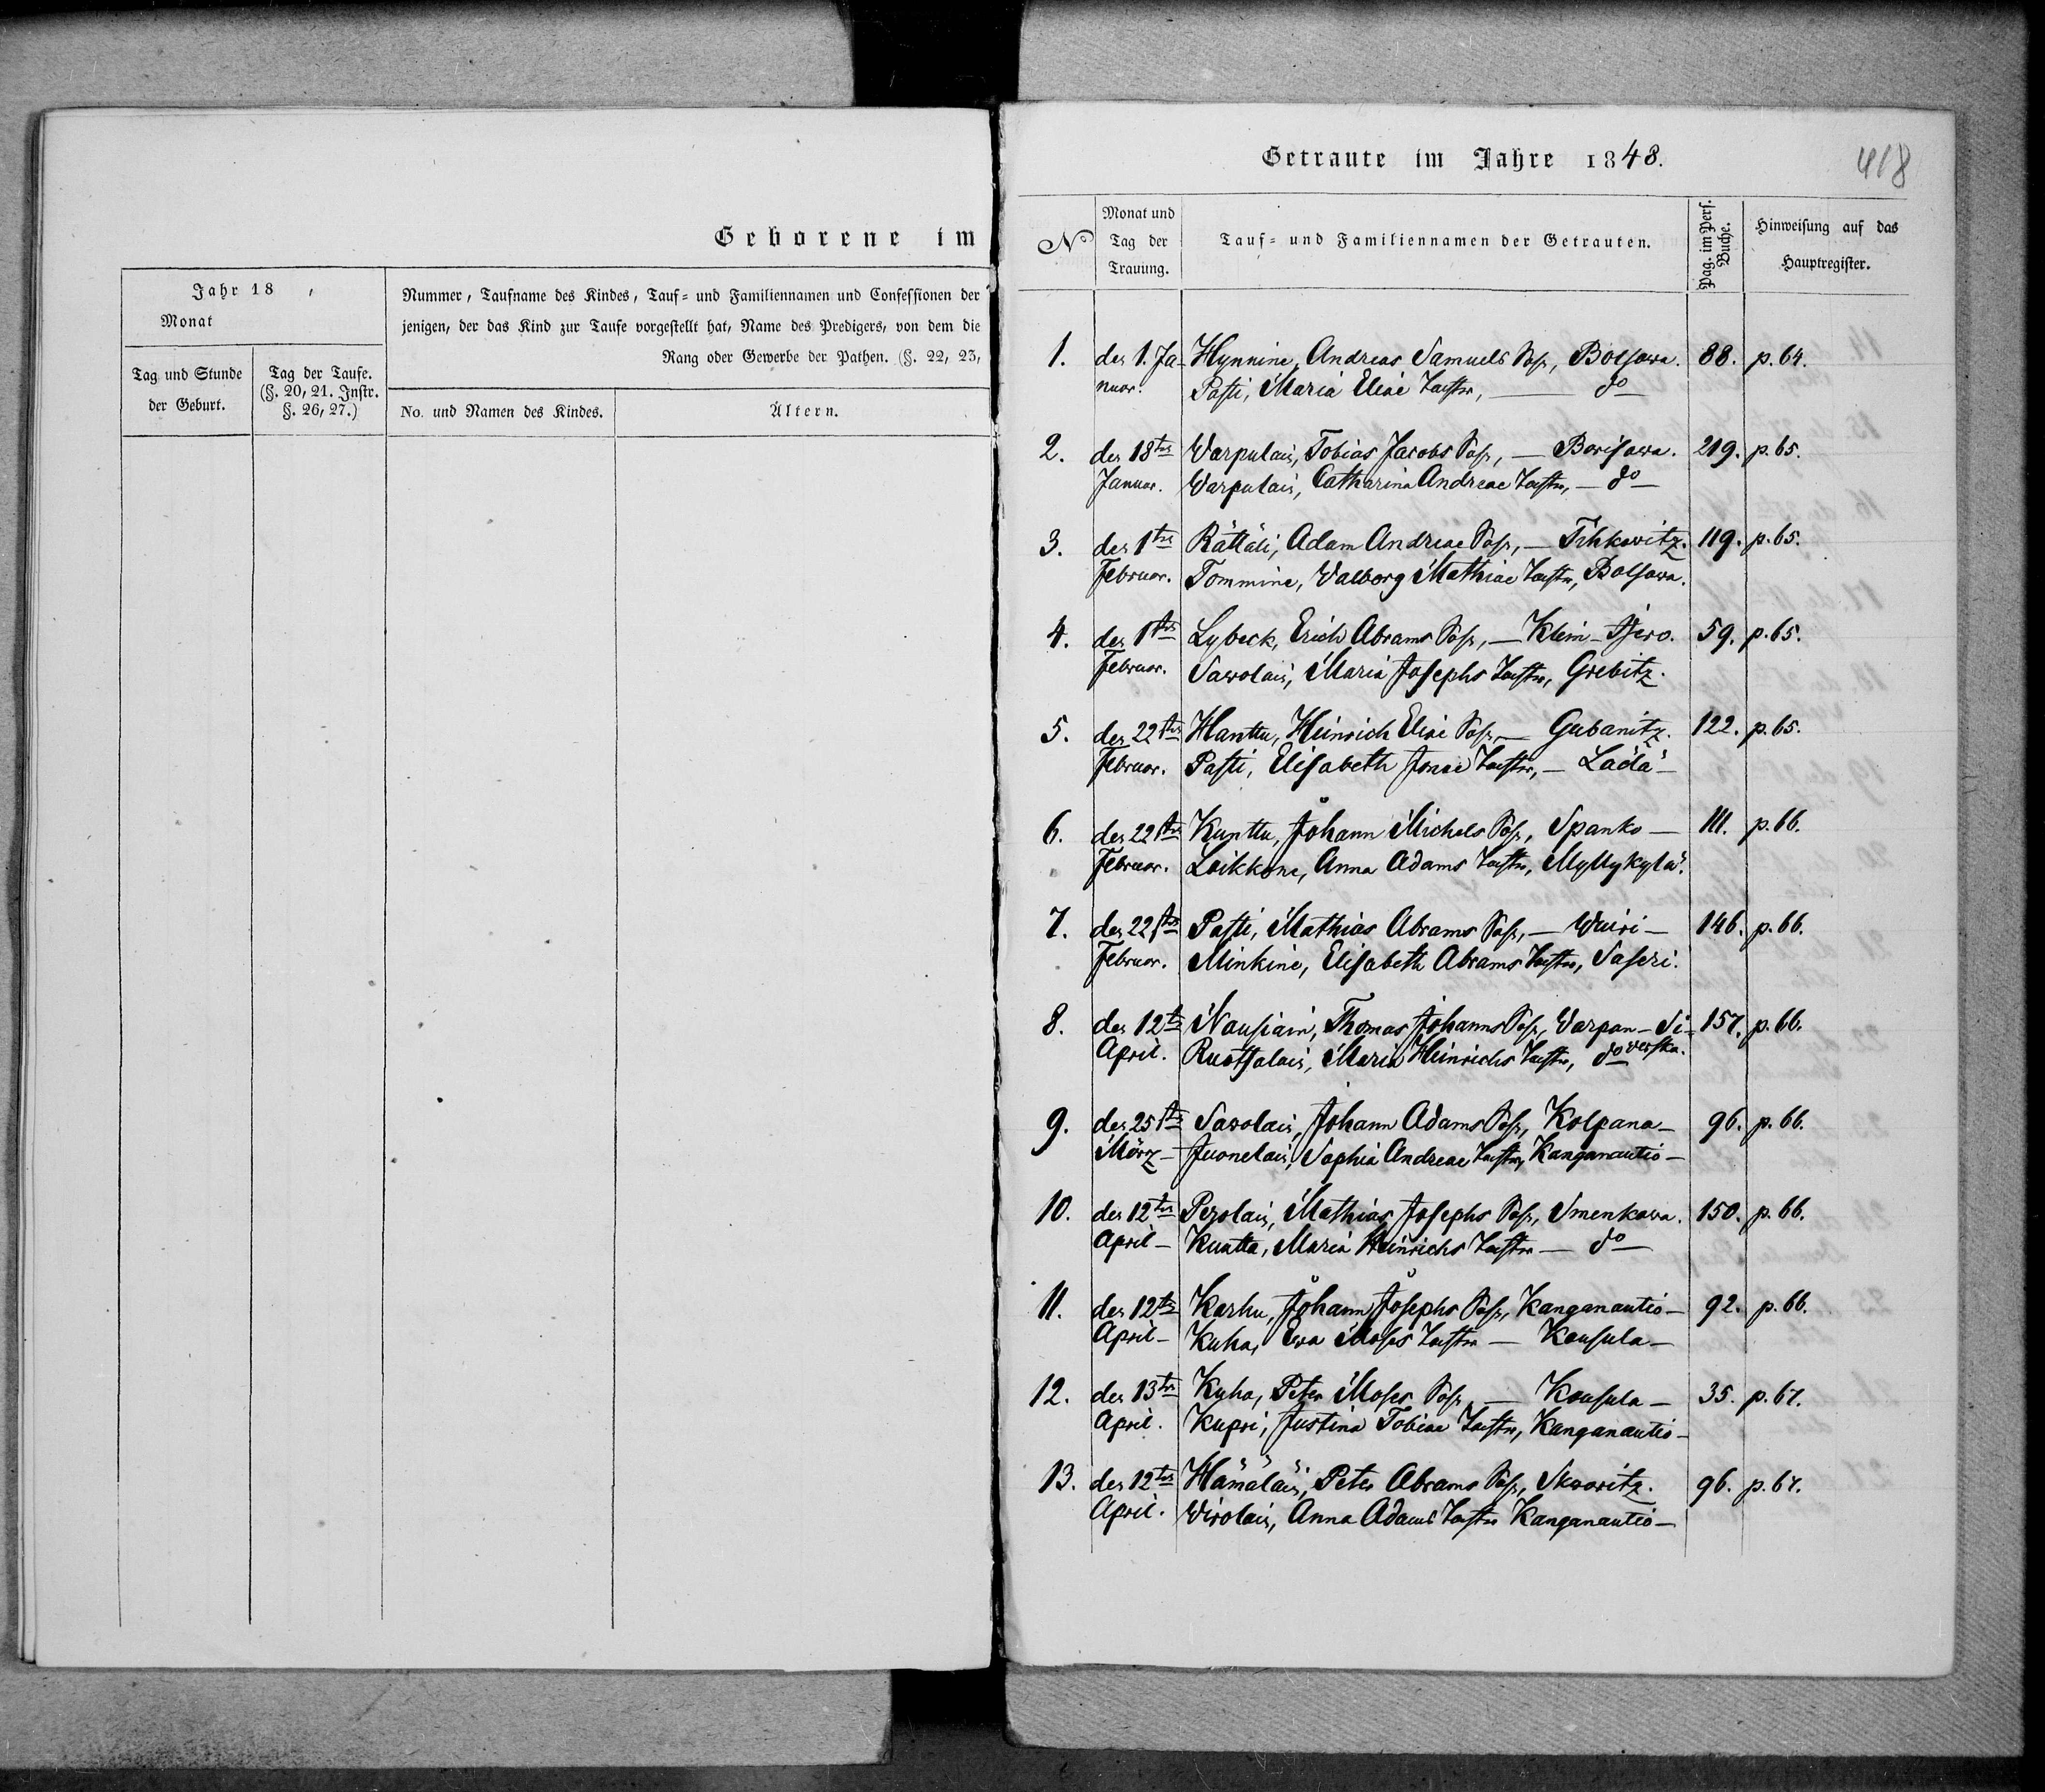 Geborene im
Jahr 18 ,
Monat
Tag und Stunde
der Geburt.
Tag der Taufe.
(§. 20, 21. Instr.
§. 26, 27.)
Nummer, Taufname des Kindes, Tauf- und Familiennamen und Confessionen der
jenigen, der das Kind zur Taufe vorgestellt hat, Name des Predigers, von dem die
Rang oder Gewerbe der Pathen. (§. 22, 23,
No. und Namen des Kindes.
Ältern.
Getraute im Jahre 1848.
418
No
Monat und
Tag der
Trauung.
Tauf- und Familiennamen der Getrauten.
Pag. im Pers.
Buche.
Hinweisung auf das
Hauptregister.
1. den 1. Ja- Hynnine, Andreas Samuels Sohn, Bolsowa. 88. p. 64.
nuar. Pasti, Maria Eliae Tochter, — do —
2. den 18ten Warpulain, Tobias Jacobs Sohn, — Borisowa. 219. p. 65.
Januar. Warpulain, Catharina Andreae Tochter, — do —
3. den 1ten Rättäli, Adam Andreae Sohn, — Tihkowitz. 119. p. 65.
Februar. Tommine, Valborg Mathiae Tochter, Bolsowa.
4. den 1ten Lybeck, Erich Abrams Sohn, — Klein- 59. p. 65.
Februar. Sawolain, Maria Josephs Tochter, Grebitz.
5. den 22ten Hanttu, Heinrich Eliae Sohn, — Gubanitz. 122. p. 65.
Februar. Pasti, Elisabeth Jonae Tochter, — Lädä —
6. den 22ten Kunttu, Johann Michels Sohn, Spanko — 111. p. 66.
Februar. Loikkone, Anna Adams Tochter, Myllykylä.
7. den 22ten Pasti, Mathias Abrams Sohn, — Wuiri — 146. p. 66.
Februar. Minkine, Elisabeth Abrams Tochter, Saseri.
8. den 12ten Nousiain, Thomas Johanns Sohn, Warpan-Si- 157. p. 66.
April. Ruotsalain, Maria Heinrichs Tochter, do werska.
9. den 25ten Sawolain, Johann Adams Sohn, Kolpana — 96. p. 66.
März — Juonelain, Sophia Andreae Tochter, Kanganautio —
10. den 12ten Perolain, Mathias Josephs Sohn, Smenkowa. 150. p. 66.
April — Kuntta, Maria Heinrichs Tochter — do —
11. den 12ten Karhu, Johann Josephs Sohn, Kanganautio — 92. p. 66.
April — Kuha, Ewa Moses Tochter — Kousula —
12. den 13ten Kuha, Peter Moses Sohn, — Kousula — 35. p. 67.
April. Kupri, Justina Tobiae Tochter, Kanganautio —
13. den 12ten Hämäläin, Peter Abrams Sohn, Skworitz. 96. p. 67.
April. Wirolain, Anna Adams Tochter Kanganautio —